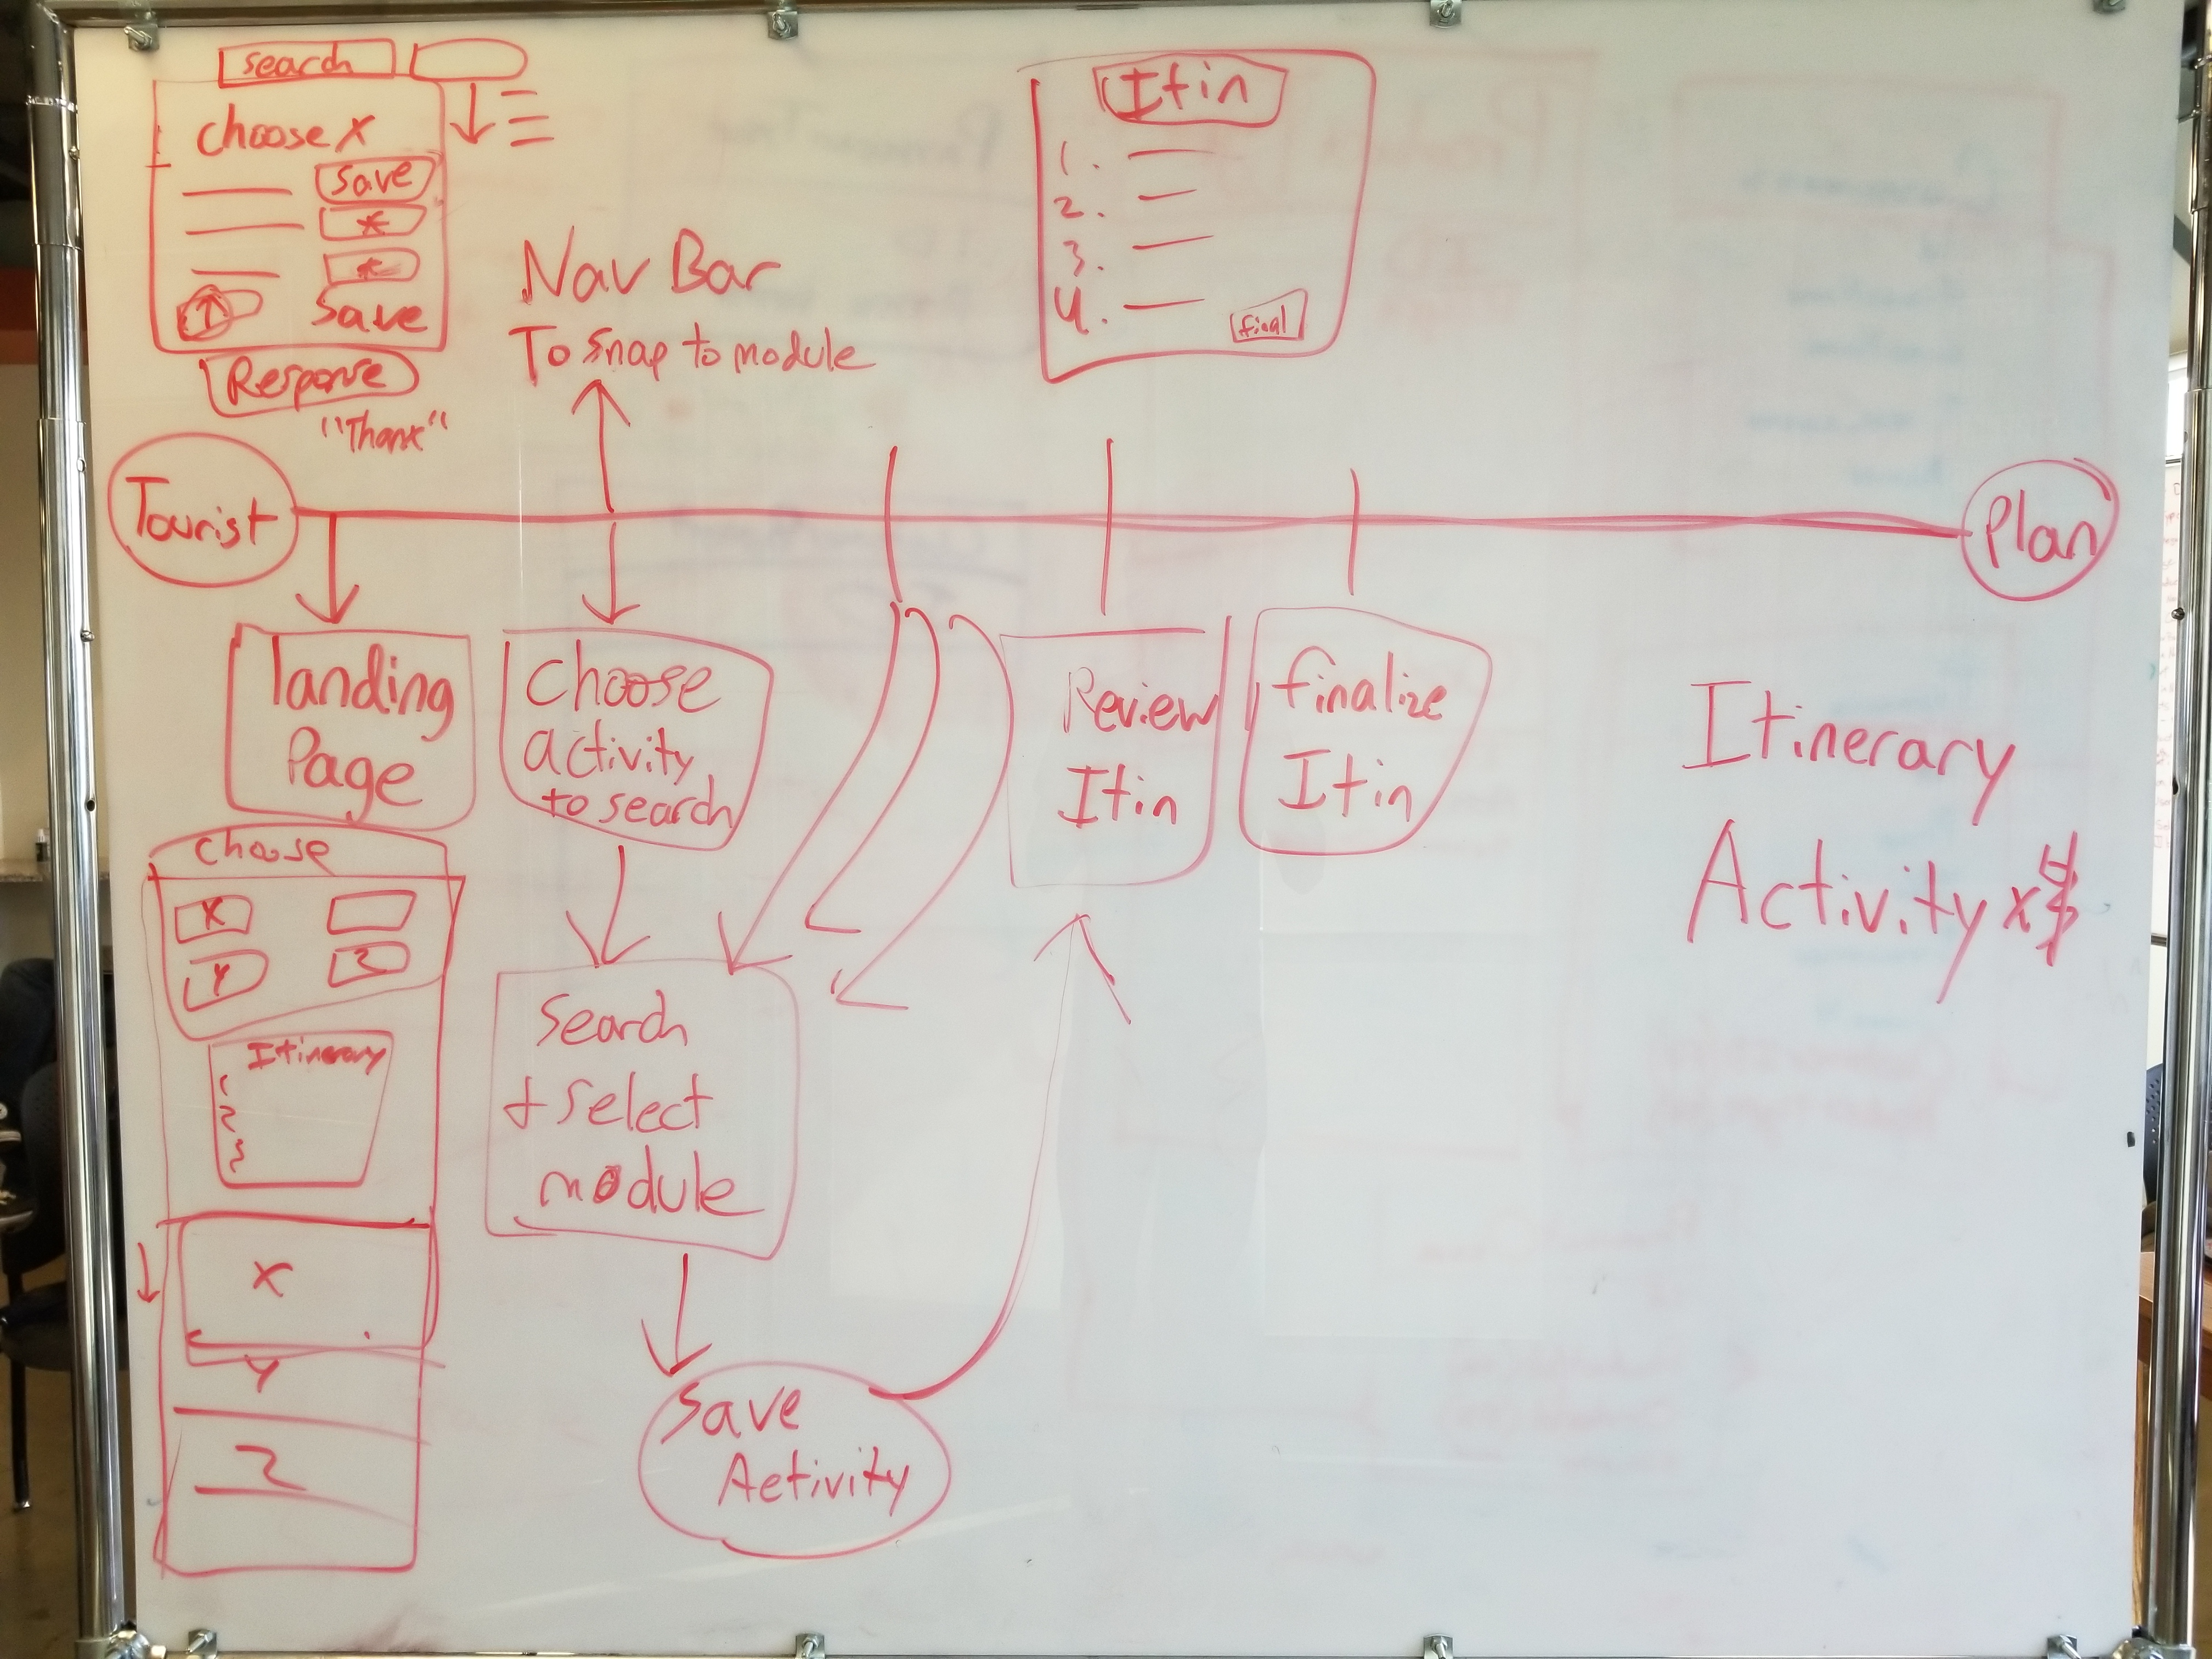 search
choose X
save
*
*
save
Response
"Thank"
Nav Bar
To snap to module
Itin
1.
2.
3.
4.
final
Tourist
Plan
landing
Page
choose
activity
to search
Review
Itin
finalize
Itin
Itinerary
Activity x
choose
X
Y
Z
Itinerary
1
2
3
X
Y
Z
Search
+ select
module
Save
Activity